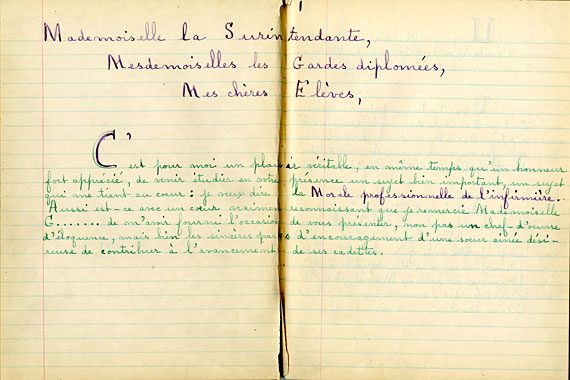 1
Mademoiselle la Surintendante,
Mesdemoiselles les Gardes diplomées,
Mes chères Elèves,
C'est pour moi un plaisir véritable, en même temps qu'un honneur
fort apprécié, de venir étudier en votre présence un sujet bien important, un sujet
qui me tient au coeur : je veux dire la Morale professionnelle de l'infirmière.
Aussi est-ce avec un coeur vraiment reconnaissant que je remercie Mademoiselle
G........ de m'avoir fourni l'occasion de vous présenter, non pas un chef-d'oeuvre
d'éloquence, mais bien les sincères paroles d'encouragement d'une soeur ainée dési-
reuse de contribuer à l'avancement de ses cadettes.